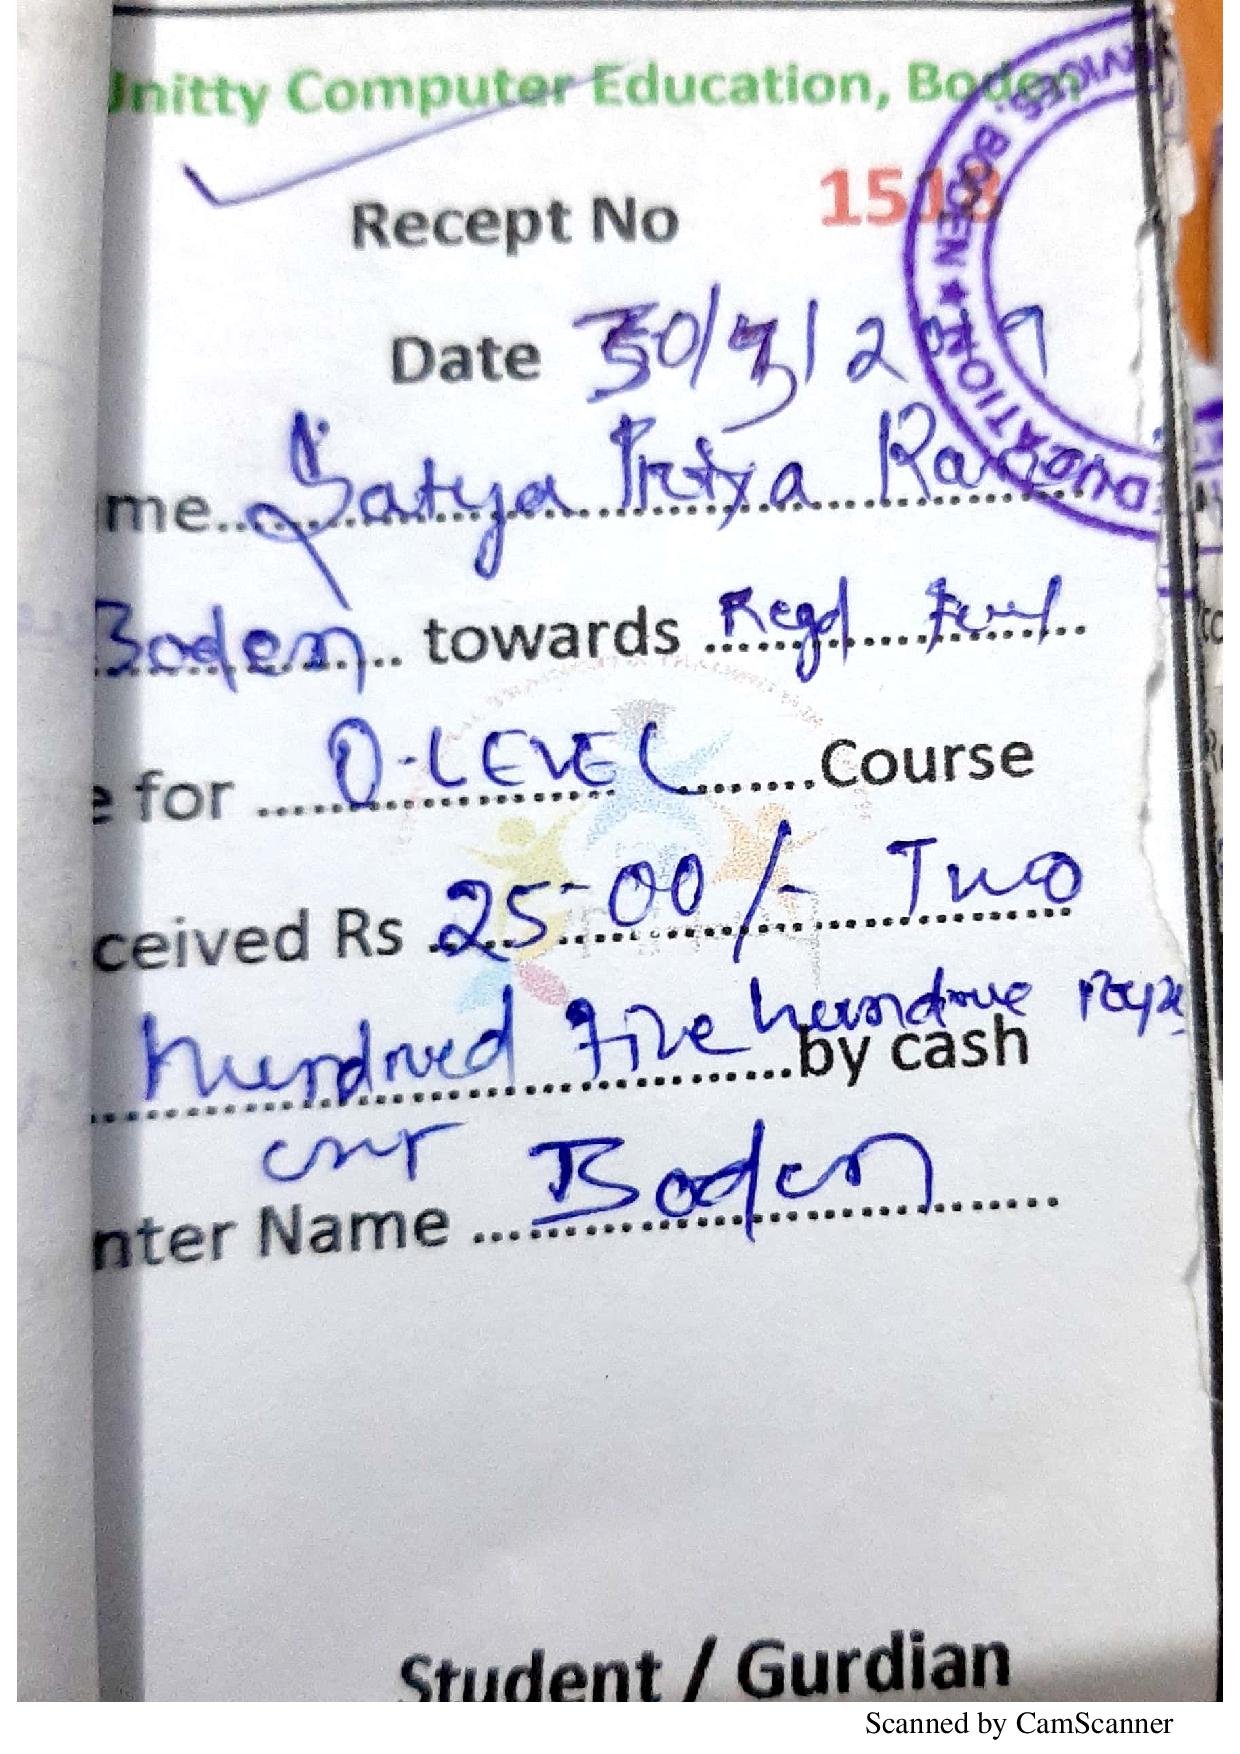 Unitty Computer Education, Boden
Recept No 1518
Date 30/ /2
me Satya Priya Ra
Boden towards Regd
e for O-LEVEL Course
ceived Rs 2500/- Two
hundred five hundrue
by cash
cntr Boden
nter Name
Student / Gurdian
SERVICES, BODEN ★ EDUCATION
Scanned by CamScanner